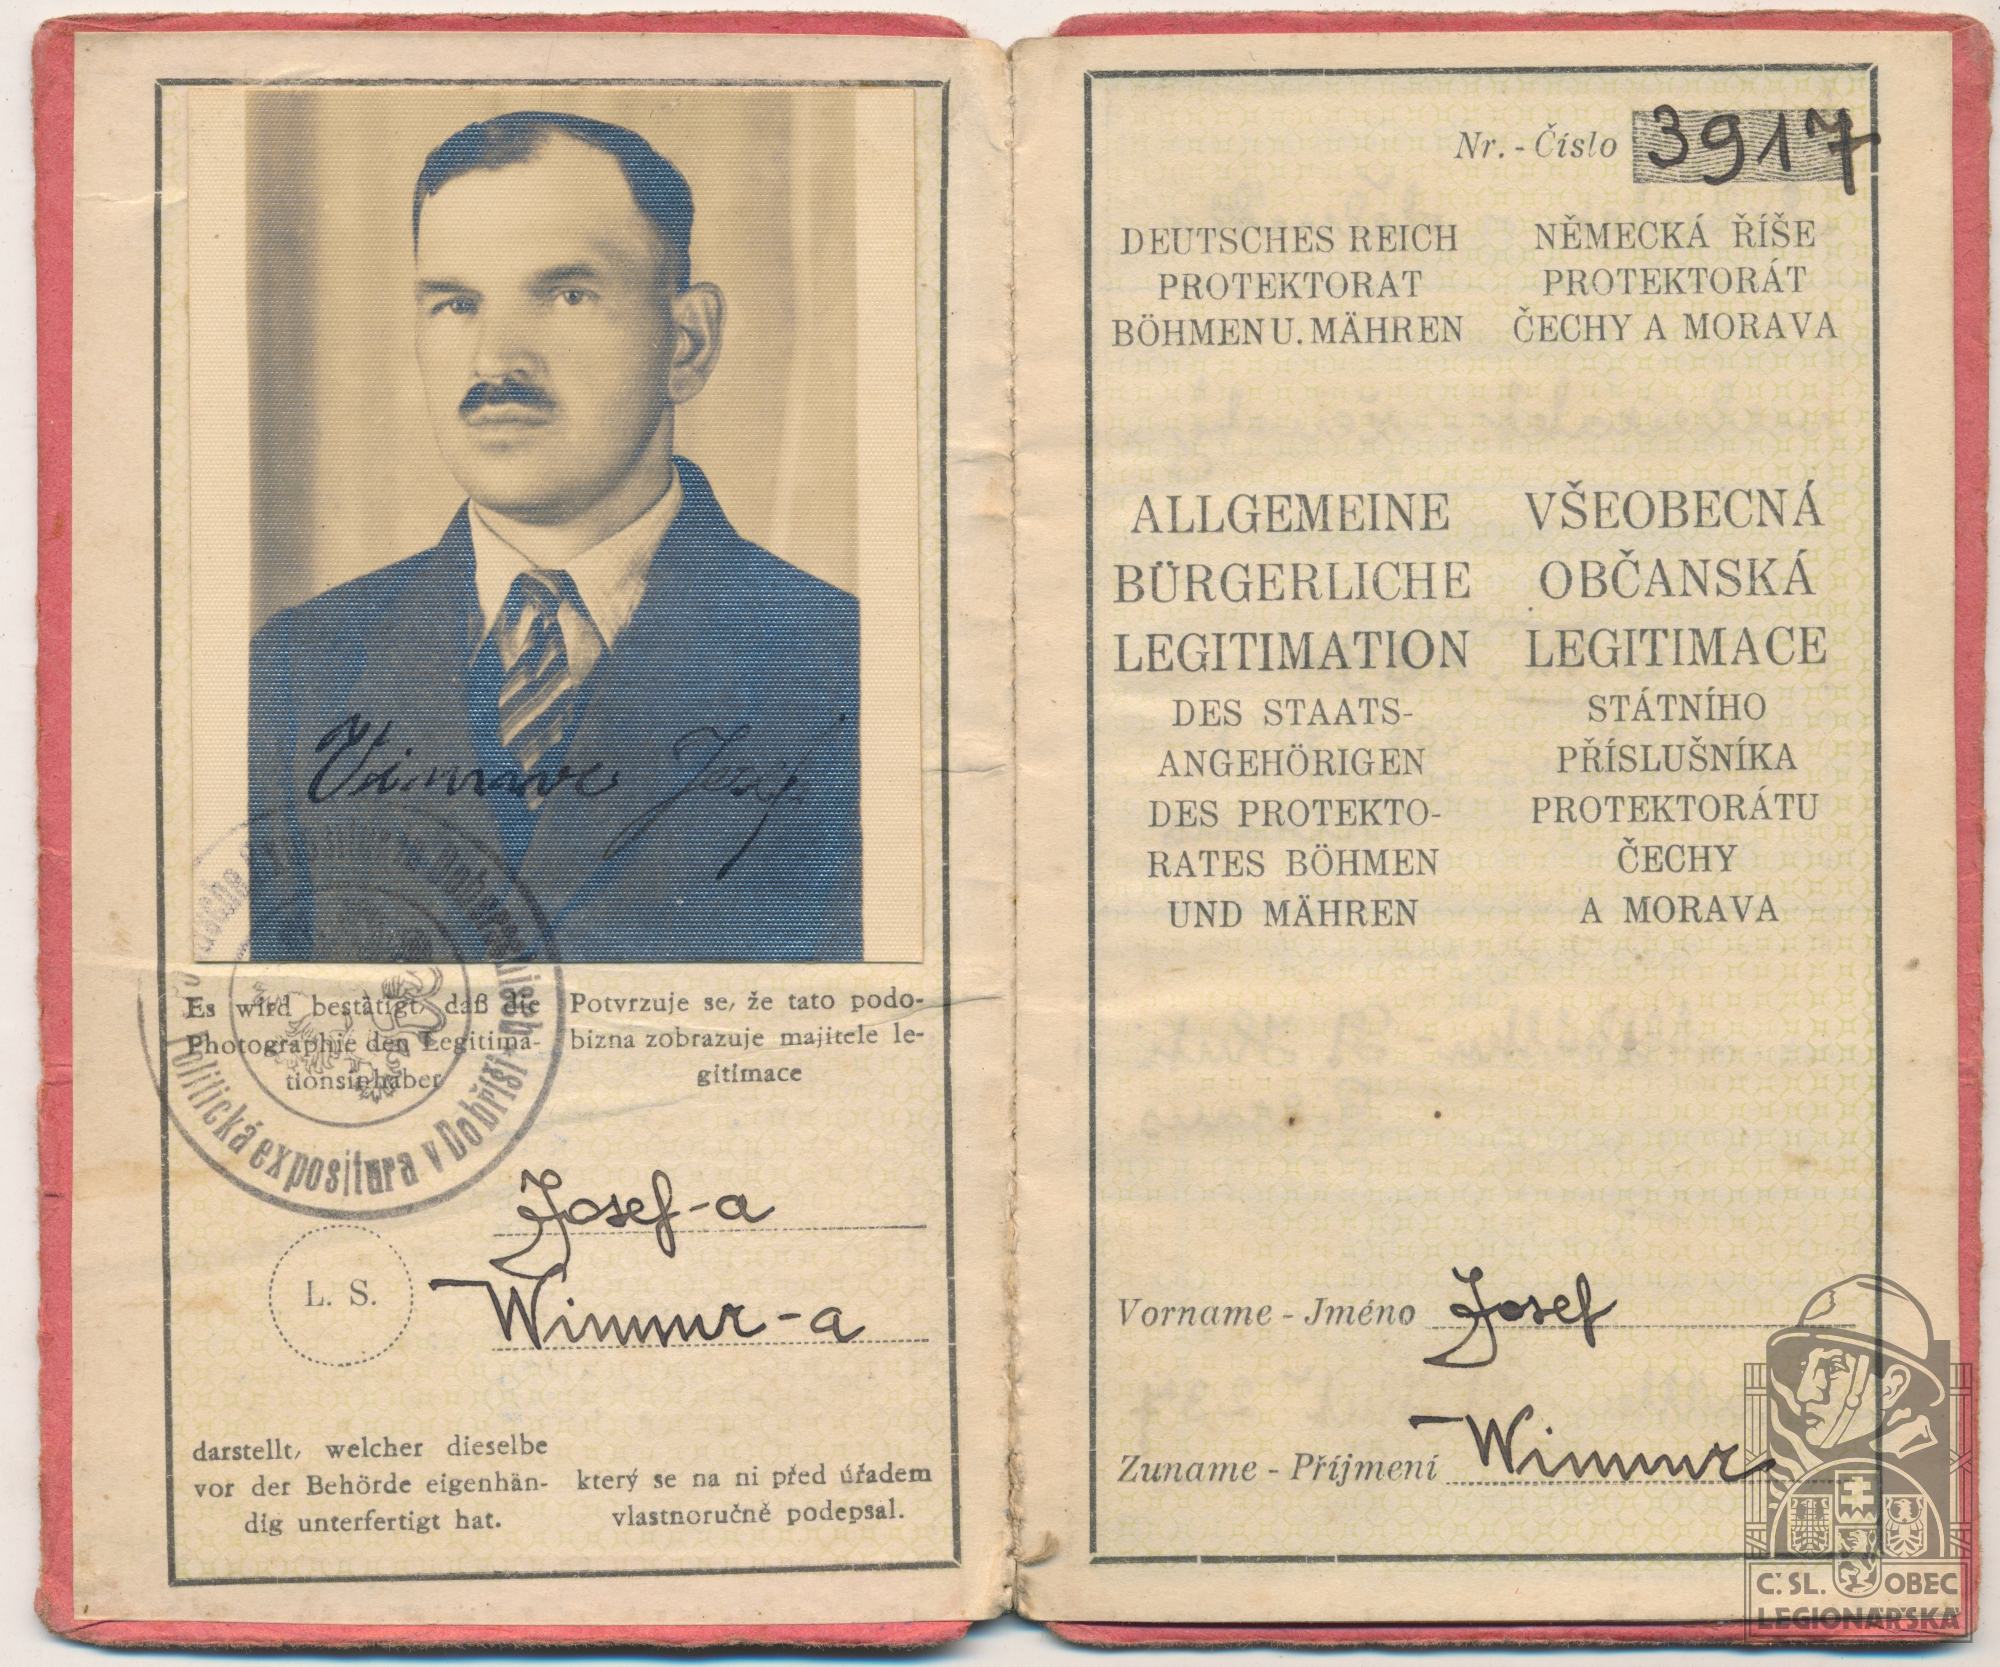 Josef
Es wird bestätigt, daß die
Photographie den Legitima-
tionsinhaber
Potvrzuje se, že tato podo-
bizna zobrazuje majitele le-
gitimace
Politická expositura v Dobříši
Josef-a
L. S.
Wimmr-a
darstellt, welcher dieselbe
vor der Behörde eigenhän-
dig unterfertigt hat.
který se na ni před úřadem
vlastnoručně podepsal.
Nr. - Číslo 3917
DEUTSCHES REICH
PROTEKTORAT
BÖHMEN U. MÄHREN
NĚMECKÁ ŘÍŠE
PROTEKTORÁT
ČECHY A MORAVA
ALLGEMEINE
BÜRGERLICHE
LEGITIMATION
DES STAATS-
ANGEHÖRIGEN
DES PROTEKTO-
RATES BÖHMEN
UND MÄHREN
VŠEOBECNÁ
OBČANSKÁ
LEGITIMACE
STÁTNÍHO
PŘÍSLUŠNÍKA
PROTEKTORÁTU
ČECHY
A MORAVA
Vorname - Jméno Josef
Zuname - Příjmení Wimmr
Č. SL. OBEC
LEGIONÁŘSKÁ